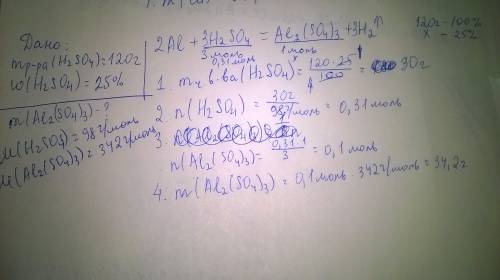 Дано:
mр-ра(H₂SO₄)=120г
ω(H₂SO₄)=25%
m(Al₂(SO₄)₃)-?
M(H₂SO₄)=98г/моль
M(Al₂(SO₄)₃)=342г/моль
2Al + 3H₂SO₄ = Al₂(SO₄)₃ + 3H₂↑
3 моль 1 моль
0,31 моль x
120г-100%
x - 25%
1. mч.в-ва(H₂SO₄)= 120·25/100 = 30г
2. n(H₂SO₄)= 30г/98г/моль = 0,31 моль
3.
n(Al₂(SO₄)₃)= 0,31·1/3 = 0,1 моль
4. m(Al₂(SO₄)₃) = 0,1 моль · 342г/моль = 34,2г